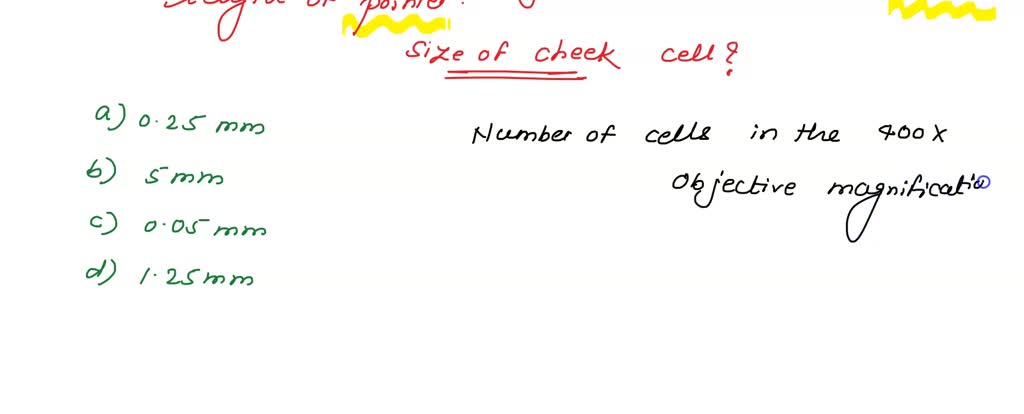 of pointer.
Size of cheek cell?
a) 0.25 mm
b) 5 mm
c) 0.05 mm
d) 1.25 mm
Number of cells in the 400x
Objective magnificatio